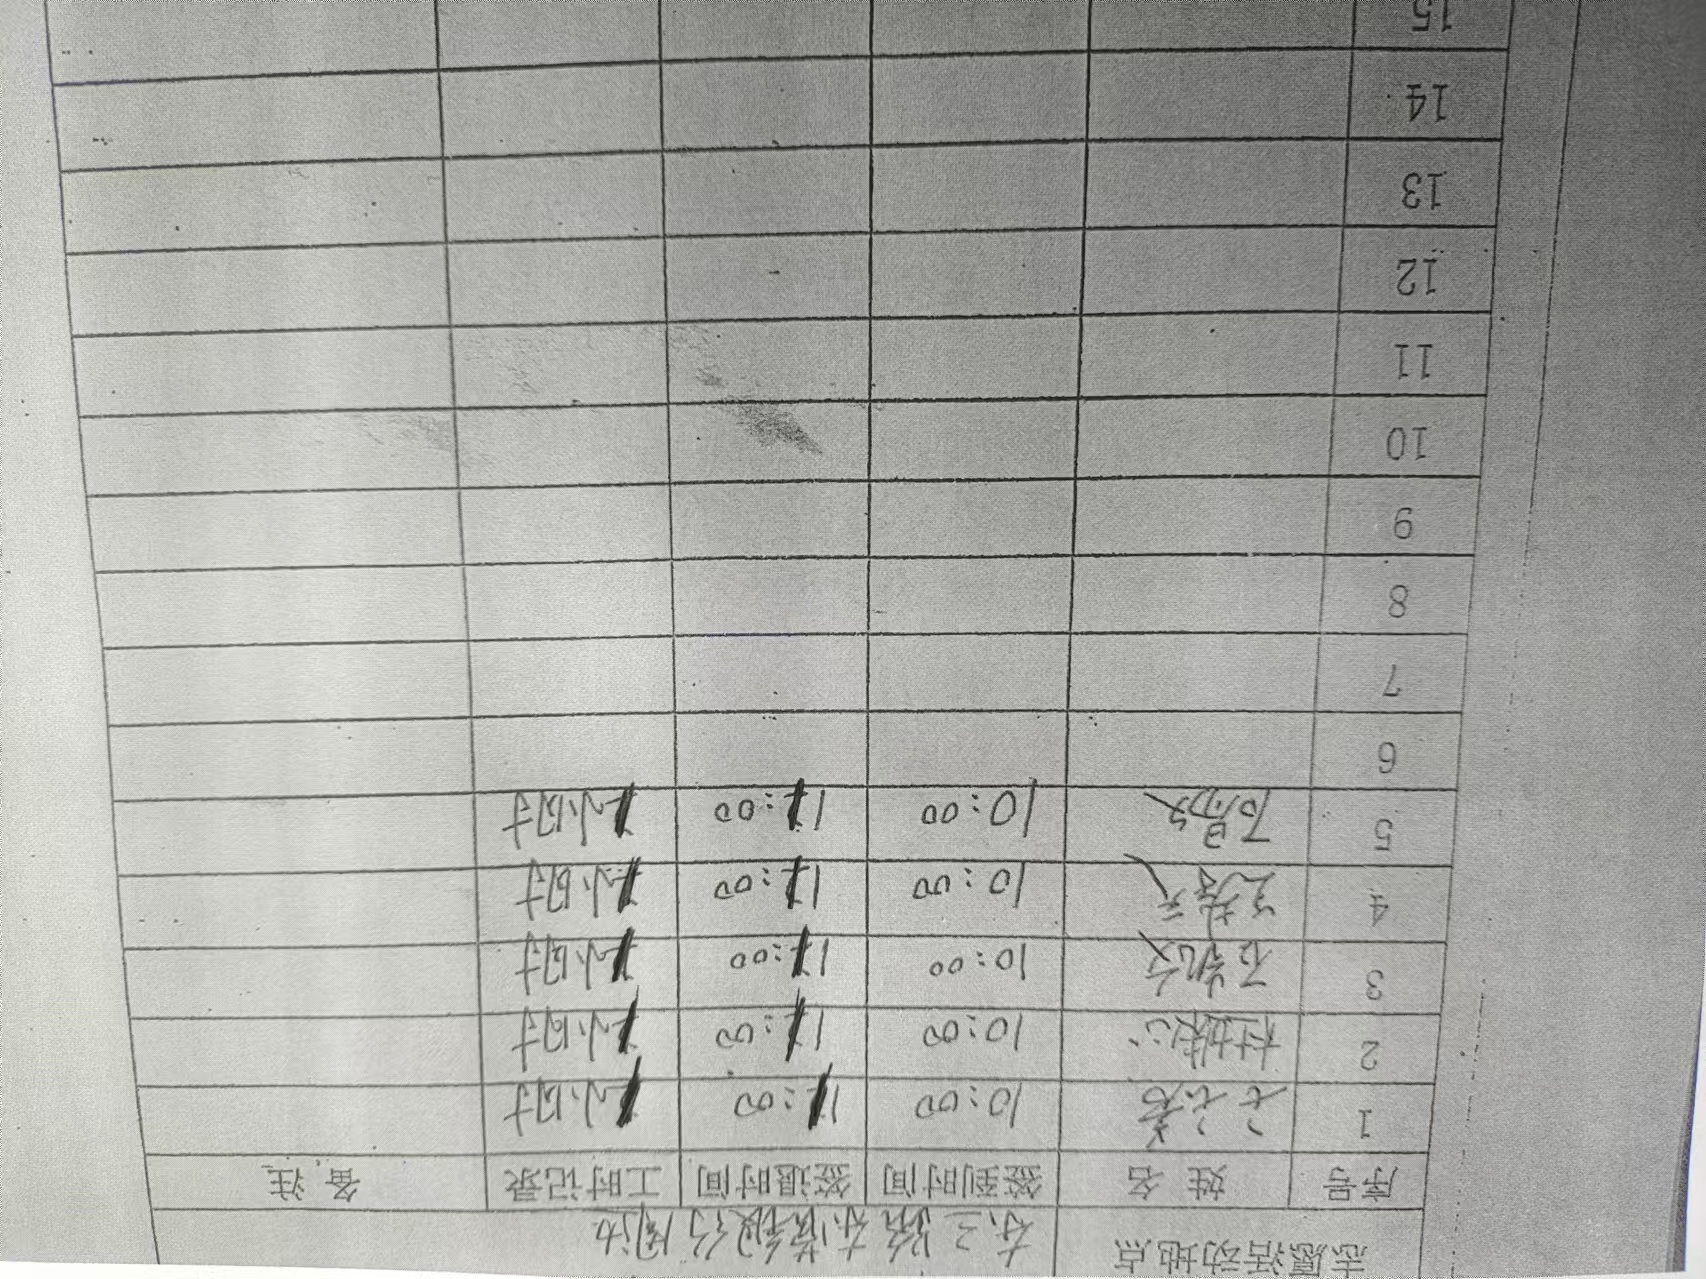 志愿活动地点 东三路东营银行周边
序号 姓 名 签到时间 签退时间 工时记录 备 注
1 10:00 11:00 1小时
2 10:00 11:00 1小时
3 10:00 11:00 1小时
4 10:00 11:00 1小时
5 10:00 11:00 1小时
6
7
8
9
10
11
12
13
14
15